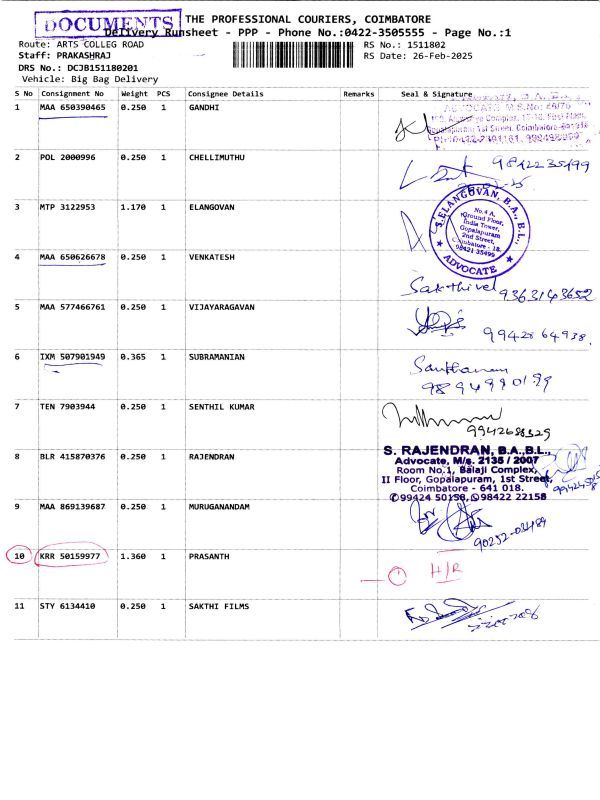 DOCUMENTS
THE PROFESSIONAL COURIERS, COIMBATORE
Delivery Runsheet - PPP - Phone No.:0422-3505555 - Page No.:1
Route: ARTS COLLEG ROAD
RS No.: 1511802
Staff: PRAKASHRAJ
RS Date: 26-Feb-2025
DRS No.: DCJB151180201
Vehicle: Big Bag Delivery
S No Consignment No Weight PCS Consignee Details Remarks Seal & Signature
1 MAA 650390465 0.250 1 GANDHI
ADVOCATE
2 POL 2000996 0.250 1 CHELLIMUTHU
9842235499
3 MTP 3122953 1.170 1 ELANGOVAN
S.ELANGOVAN, B.A., B.L.,
No.4 A,
Ground Floor,
India Tower,
Gopalapuram
2nd Street,
Coimbatore - 18.
98421 35499
ADVOCATE
4 MAA 650626678 0.250 1 VENKATESH
Sakthivel 9363143652
5 MAA 577466761 0.250 1 VIJAYARAGAVAN
9942864938.
6 IXM 507901949 0.365 1 SUBRAMANIAN
Santhanam
9894990199
7 TEN 7903944 0.250 1 SENTHIL KUMAR
9942688529
8 BLR 415870376 0.250 1 RAJENDRAN
S. RAJENDRAN, B.A.,B.L.,
Advocate, M/s. 2135 / 2007
Room No.1, Balaji Complex,
II Floor, Gopalapuram, 1st Street,
Coimbatore - 641 018.
✆99424 50158, ✆98422 22158
9 MAA 869139687 0.250 1 MURUGANANDAM
10 KRR 50159977 1.360 1 PRASANTH
H/R
11 STY 6134410 0.250 1 SAKTHI FILMS